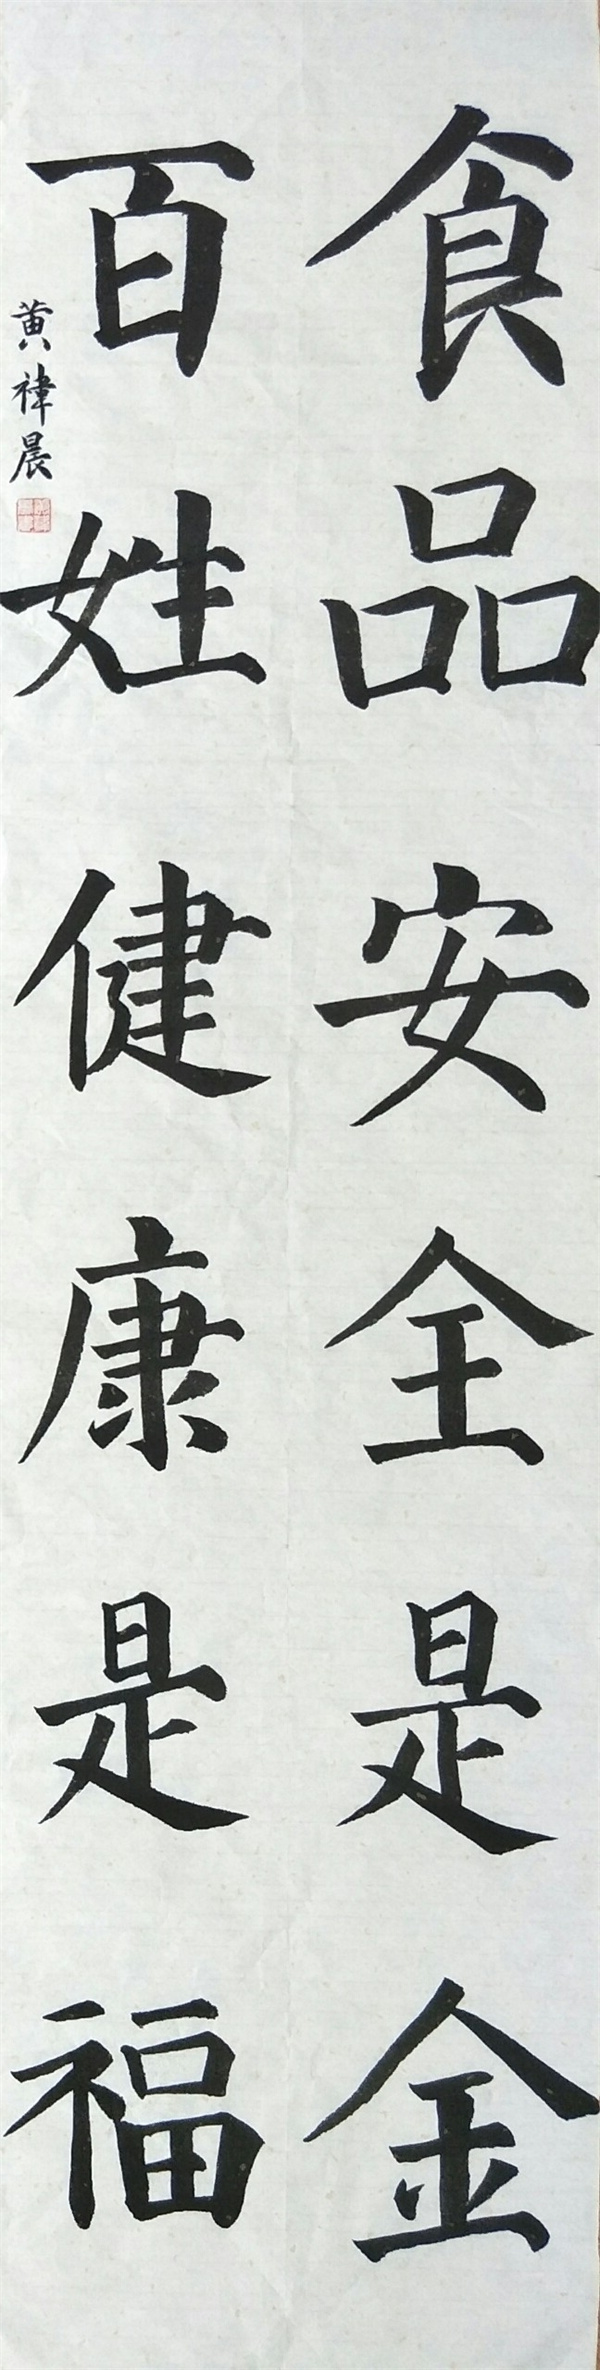 食品安全是金
百姓健康是福
黄禕晨